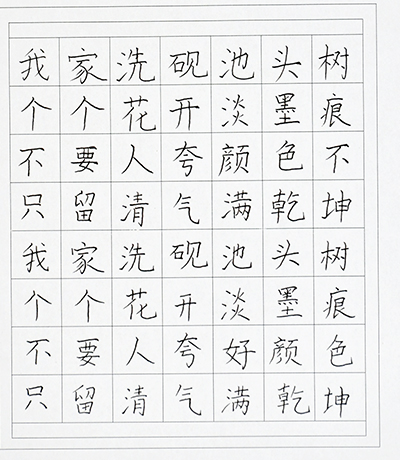 我家洗砚池头树
个个花开淡墨痕
不要人夸颜色不
只留清气满乾坤
我家洗砚池头树
个个花开淡墨痕
不要人夸好颜色
只留清气满乾坤